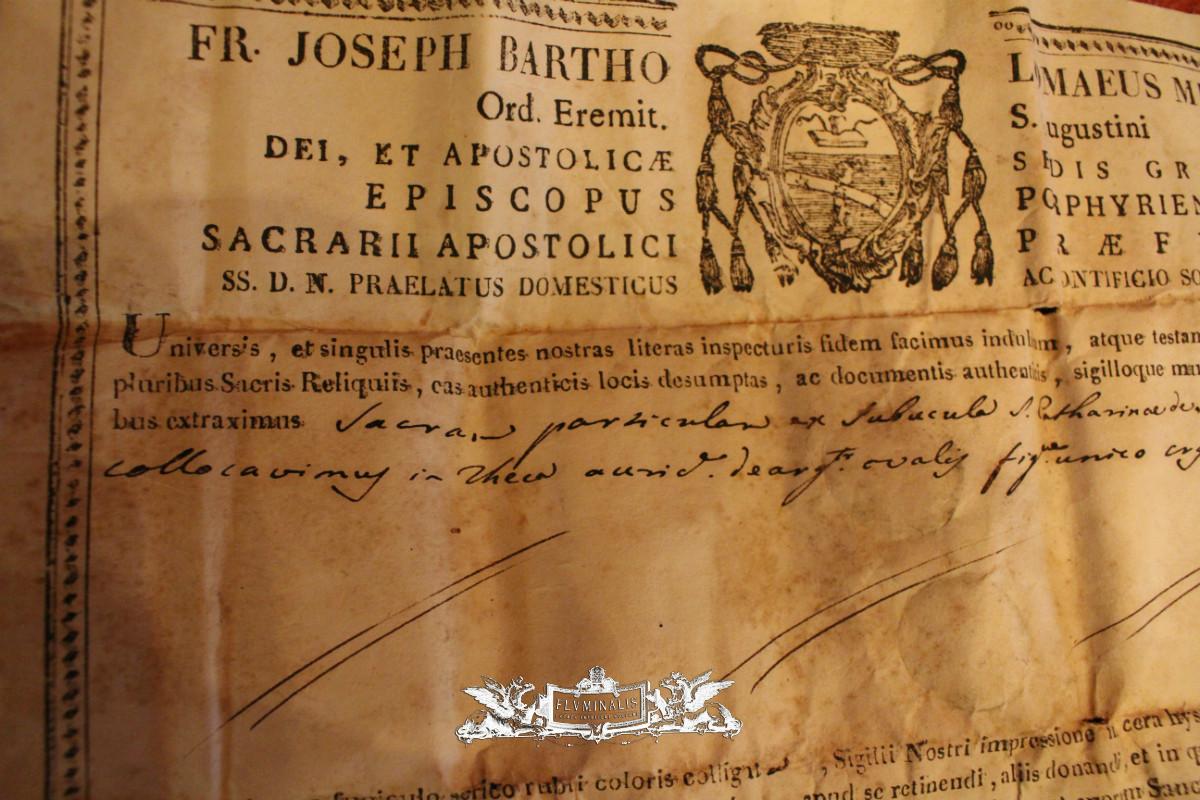 FR. JOSEPH BARTHO LOMAEUS M
Ord. Eremit. S. ugustini
DEI, ET APOSTOLICÆ SEDIS GR
EPISCOPUS PORPHYRIEN
SACRARII APOSTOLICI PRÆF
SS. D. N. PRAELATUS DOMESTICUS AC ONTIFICIO SO
Universis, et singulis praesentes nostras literas inspecturis fidem facimus indubiam, atque testam
pluribus Sacris Reliquiis, eas authenticis locis desumptas, ac documentis authenticis, sigilloque mu
bus extraximus Sacram particulam ex Subucula S. Catharinae de
collocavimus in theca aurid. de arg. ovalis fig. unico
FLVMINALIS
funiculo serico rubri coloris colligat , Sigilli Nostri impressione in cera hys
apud se retinendi, aliis donandi, et in